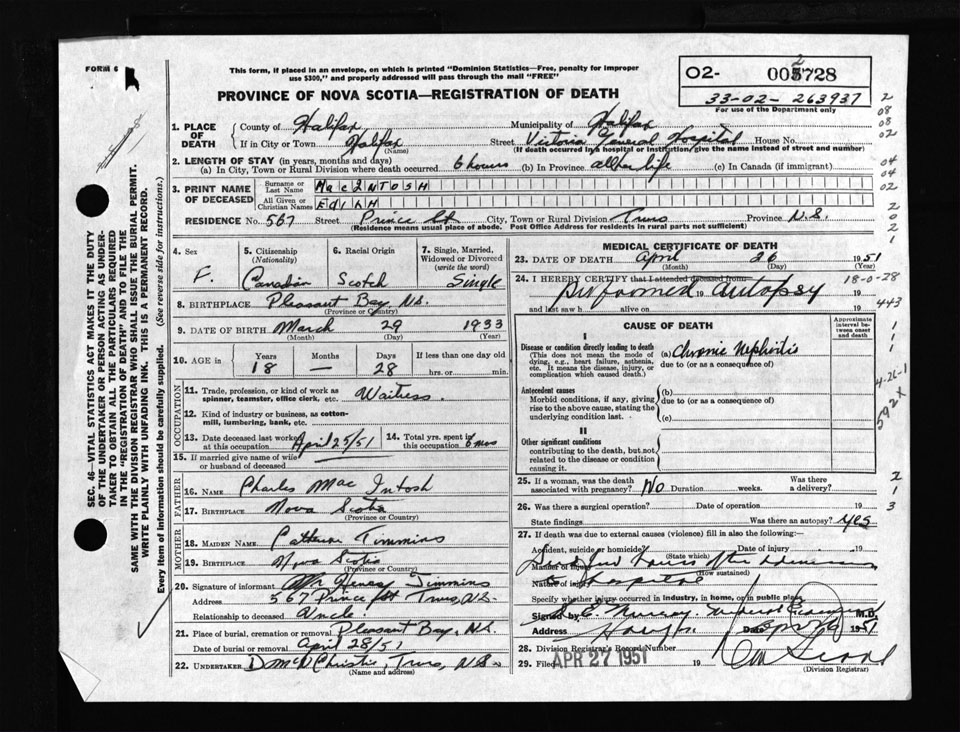 FORM 6
This form, if placed in an envelope, on which is printed "Dominion Statistics—Free, penalty for improper
use $300," and properly addressed will pass through the mail "FREE"
O2- 002728
PROVINCE OF NOVA SCOTIA—REGISTRATION OF DEATH
33-02- 263937
For use of the Department only
1. PLACE OF DEATH
County of Halifax Municipality of Halifax
If in City or Town Halifax (Name) Street Victoria General Hospital House No.
(If death occurred in a hospital or institution, give the name instead of street and number)
2. LENGTH OF STAY (in years, months and days)
(a) In City, Town or Rural Division where death occurred 6 hours (b) In Province all her life (c) In Canada (if immigrant)
3. PRINT NAME OF DECEASED
Surname or Last Name MacINTOSH
All Given or Christian Names EDITH
RESIDENCE No. 567 Street Prince St City, Town or Rural Division Truro Province N.S.
(Residence means usual place of abode. Post Office Address for residents in rural parts not sufficient)
4. Sex F.
5. Citizenship (Nationality) Canadian
6. Racial Origin Scotch
7. Single, Married, Widowed or Divorced (write the word) Single
8. BIRTHPLACE Pleasant Bay, N.S.
(Province or Country)
9. DATE OF BIRTH March 29 1933
(Month) (Day) (Year)
10. AGE in Years 18 Months — Days 28 If less than one day old
hrs. or min.
OCCUPATION
11. Trade, profession, or kind of work as spinner, teamster, office clerk, etc. Waitress
12. Kind of industry or business, as cotton-mill, lumbering, bank, etc.
13. Date deceased last worked at this occupation April 25/51
14. Total yrs. spent in this occupation 6 mos
15. If married give name of wife or husband of deceased
FATHER
16. NAME Charles Mac Intosh
17. BIRTHPLACE Nova Scotia
(Province or Country)
MOTHER
18. MAIDEN NAME Catherine Timmins
19. BIRTHPLACE Nova Scotia
(Province or Country)
20. Signature of informant Henry Timmins
Address 567 Prince St Truro, N.S.
Relationship to deceased Uncle
21. Place of burial, cremation or removal Pleasant Bay, N.S.
Date of burial or removal April 28/51
22. UNDERTAKER Christie, Truro, N.S.
(Name and address)
MEDICAL CERTIFICATE OF DEATH
23. DATE OF DEATH April 26 1951
(Month) (Day) (Year)
24. I HEREBY CERTIFY that I attended deceased from 18-0-28
performed autopsy
and last saw h alive on 19
CAUSE OF DEATH
Approximate interval between onset and death
I
Disease or condition directly leading to death (a) Chronic Nephritis
(This does not mean the mode of dying, e.g., heart failure, asthenia, etc. It means the disease, injury, or complication which caused death.)
due to (or as a consequence of)
Antecedent causes (b)
Morbid conditions, if any, giving rise to the above cause, stating the underlying condition last.
due to (or as a consequence of)
(c)
II
Other significant conditions contributing to the death, but not related to the disease or condition causing it.
25. If a woman, was the death associated with pregnancy? No Duration weeks. Was there a delivery?
26. Was there a surgical operation? Date of operation 19
State findings Was there an autopsy? yes
27. If death was due to external causes (violence) fill in also the following:
Accident, suicide or homicide? Date of injury 19
(State which)
Manner of injury
(How sustained)
Nature of injury hospital
Specify whether injury occurred in industry, in home, or in public place
Signed by Murray, Medical Examiner M.D.
Address Date 1951
28. Division Registrar's Record Number
29. Filed APR 27 1951 19
(Division Registrar)
SEC. 46—VITAL STATISTICS ACT MAKES IT THE DUTY
OF THE UNDERTAKER OR PERSON ACTING AS UNDER-
TAKER TO OBTAIN ALL THE PARTICULARS REQUIRED
IN THE "REGISTRATION OF DEATH" AND TO FILE THE
SAME WITH THE DIVISION REGISTRAR WHO SHALL ISSUE THE BURIAL PERMIT.
WRITE PLAINLY WITH UNFADING INK. THIS IS A PERMANENT RECORD.
Every item of information should be carefully supplied. (See reverse side for instructions.)
2
08
08
02
04
04
02
2
0
2
1
443
1
1
1
4-26-1
592x
2
1
3